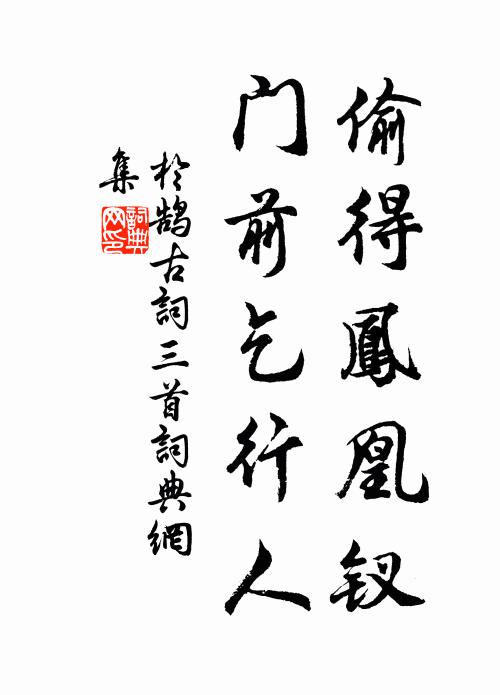 偷得鳳凰釵
門前乞行人
於鵠古詞三首詞典網
集
詞典
网印